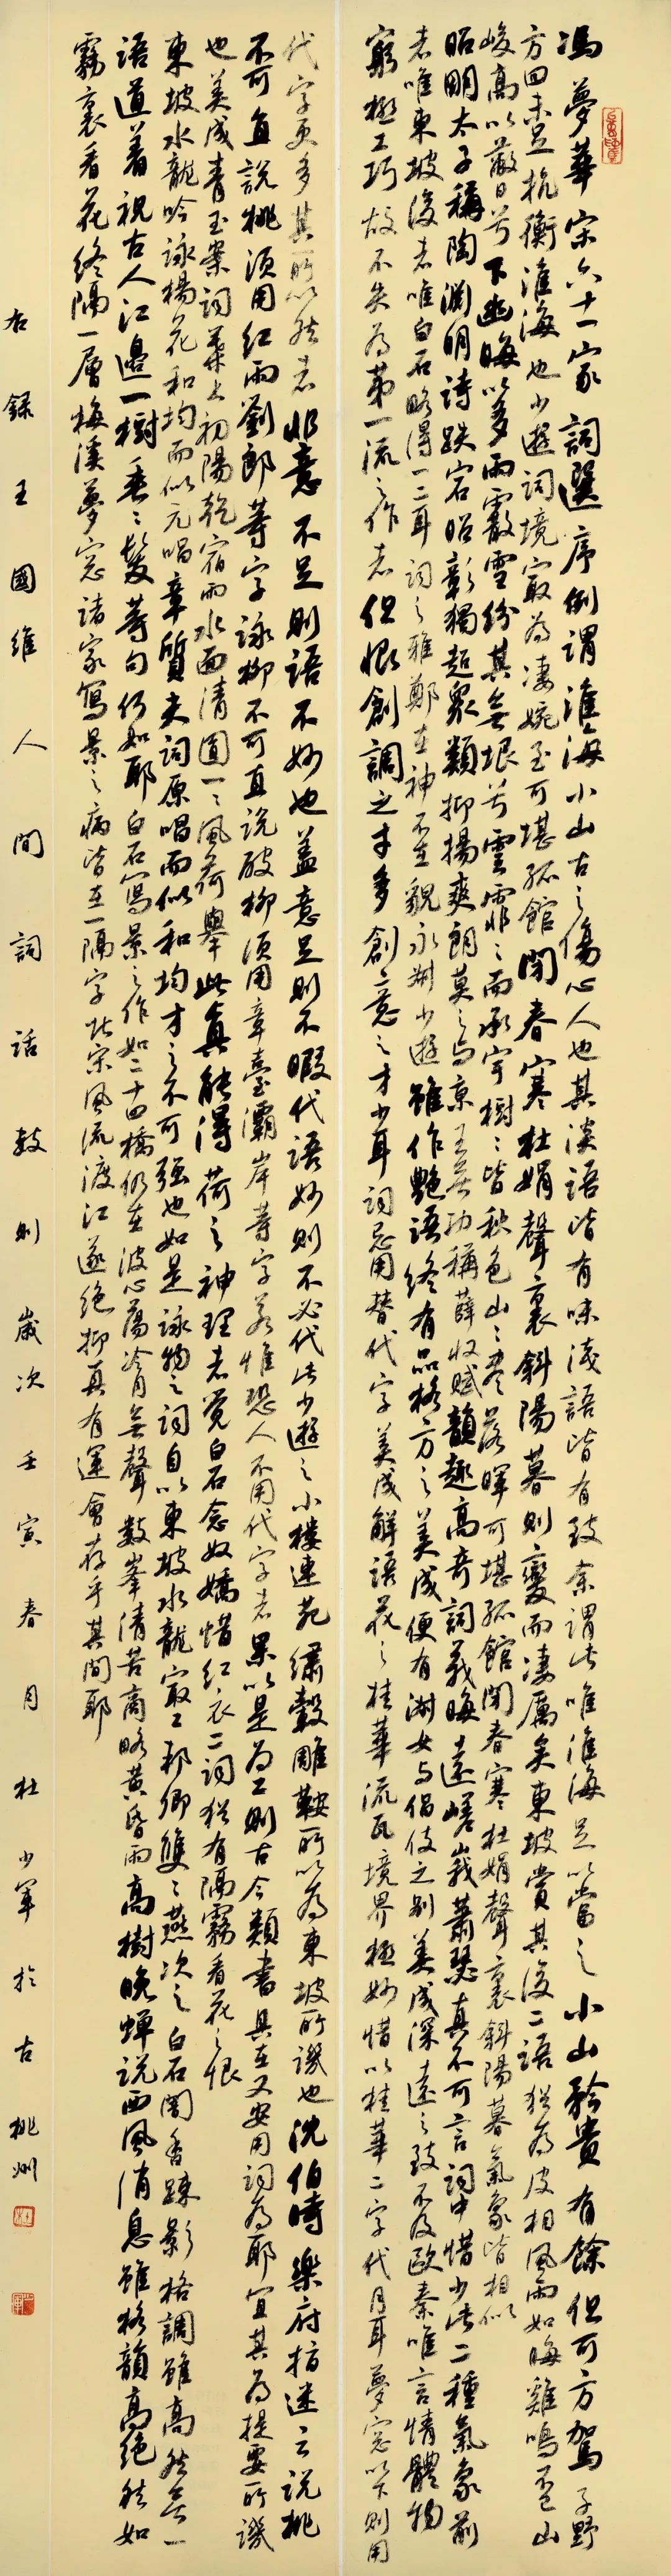 馮夢華宋六十一家詞選序例謂淮海小山古之傷心人也其淡語皆有味淺語皆有致余謂此唯淮海足以當之小山矜貴有餘但可方駕子野
方回未足抗衡淮海也少游詞境寂為淒婉至可堪孤館閉春寒杜娟聲裏斜陽暮則變而淒厲矣東坡賞其後二語猶為皮相風雨如晦雞鳴不已山
峻高以蔽日兮下幽晦以多雨霰雪紛其無垠兮雲霏霏而承宇樹樹皆秋色山山盡落暉可堪孤館閉春寒杜娟聲裏斜陽暮氣象皆相似
昭明太子稱陶淵明詩跌宕昭彰獨超眾類抑揚爽朗莫之與京王無功稱薛收賦韻趣高奇詞義晦遠嵯峨蕭瑟真不可言詞中惜少此二種氣象前
者唯東坡後者唯白石略得一二耳詞之雅鄭在神不在貌永叔少游雖作艷語終有品格方之美成便有淑女與倡伎之別美成深遠之致不及歐秦唯言情體物
窮極工巧故不失為第一流之作者但恨創調之才多創意之才少耳詞忌用替代字美成解語花之桂華流瓦境界極妙惜以桂華二字代月耳夢窗以下則用
代字更多其所以然者非意不足則語不妙也蓋意足則不暇代語妙則不必代此少游之小樓連苑繡轂雕鞍所以為東坡所譏也沈伯時樂府指迷云說桃
不可直說桃須用紅雨劉郎等字詠柳不可直說破柳須用章臺灞岸等字若惟恐人不用代字者果以是為工則古今類書具在又安用詞為耶宜其為提要所譏
也美成青玉案詞葉上初陽乾宿雨水面清圓一一風荷舉此真能得荷之神理者覺白石念奴嬌惜紅衣二詞猶有隔霧看花之恨
東坡水龍吟詠楊花和均而似元唱章質夫詞原唱而似和均才之不可強也如是詠物之詞自以東坡水龍寂工邦卿雙雙燕次之白石闇香疎影格調雖高然無一
語道着視古人江邊一樹垂垂發等句何如耶白石寫景之作如二十四橋仍在波心蕩冷月無聲數峯清苦商略黃昏雨高樹晚蟬說西風消息雖格韻高絕然如
霧裏看花終隔一層梅溪夢窗諸家寫景之病皆在一隔字北宋風流渡江遂絕抑真有運會存乎其間耶
右錄王國維人間詞話數則歲次壬寅春月杜少軍於古桃州